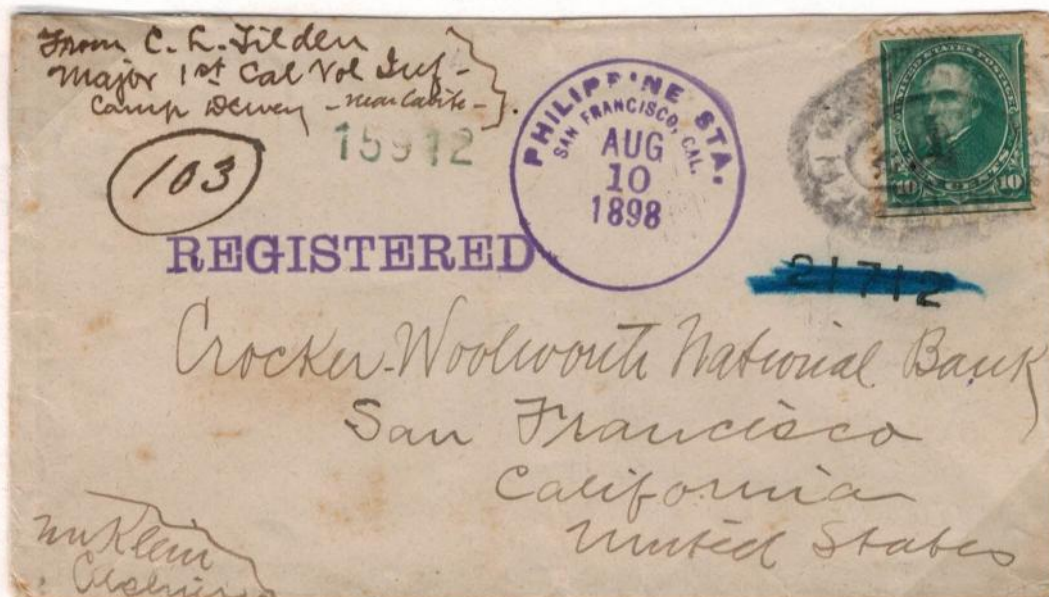 From C. L. Tilden
Major 1st Cal Vol Inf -
Camp Dewey - near Cavite -
103
15912
PHILIPPINE STA.
SAN FRANCISCO, CAL.
AUG
10
1898
UNITED STATES POSTAGE
10 TEN CENTS 10
REGISTERED
21712
Crocker-Woolworth National Bank
San Francisco
California
United States
Wm Klein
Cashier